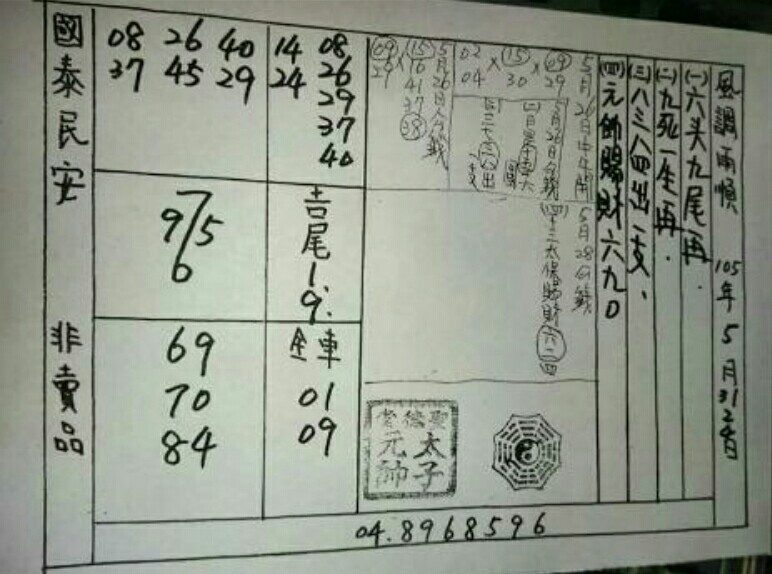 風調雨順 105年5月31日
(一)六头九尾再.
(二)九死一生再.
(三)八三八四出一支.
(四)元帥賜財六九0
5月26日中午開
09 × 15 × 02
29 30 04
5月26日公籤
5月26日公籤
15 × 09
16 29
41
37
38
5月28公籤
(四)十三太保賜財六二四
聖德堂
太子
元帥
14 08
24 26
29
37
40
08 26 40
37 45 29
吉尾1.9.
全車
01
09
7
9/5
6
69
70
84
國泰民安 非賣品
04.8968596